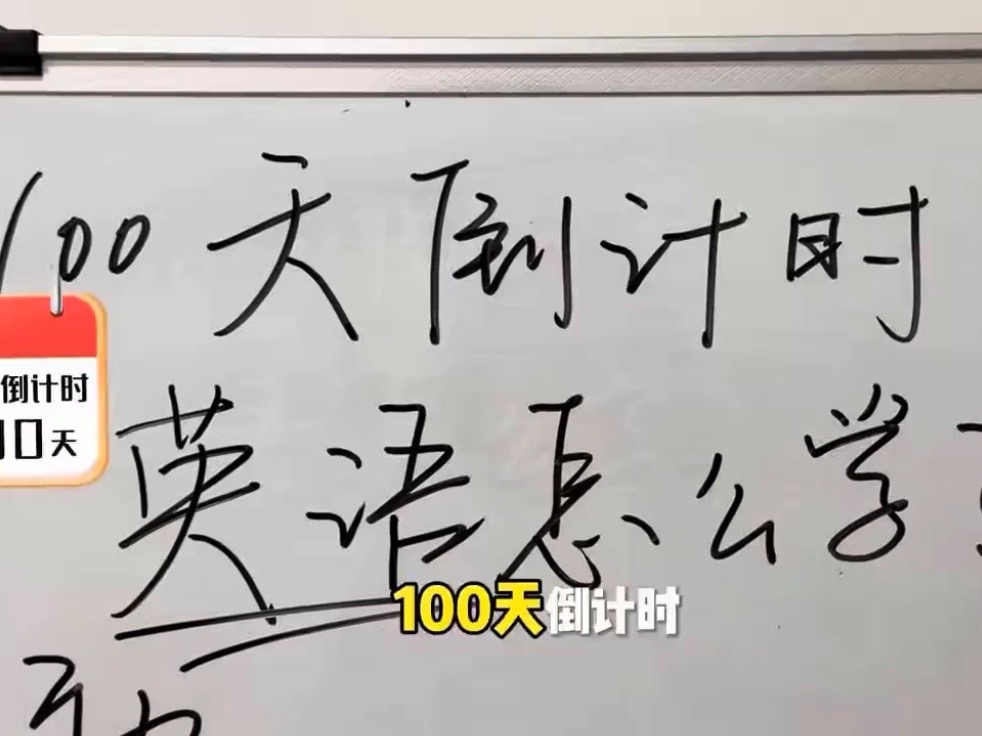 100天倒计时
倒计时
10天
英语怎么学
100天倒计时